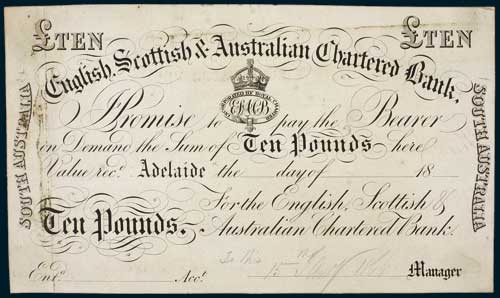 £TEN £TEN
English, Scottish & Australian Chartered Bank.
SOUTH AUSTRALIA
SOUTH AUSTRALIA
INCORPORATED BY ROYAL CHARTER
I Promise to pay the Bearer
on Demand the Sum of Ten Pounds here
Value recd. Adelaide the day of 18
For the English, Scottish &
Ten Pounds. Australian Chartered Bank.
Entd. Acct. Manager